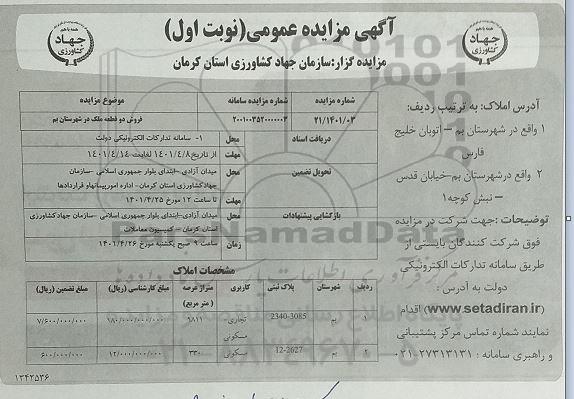 آگهی مزایده عمومی(نوبت اول)
مزایده گزار:سازمان جهاد کشاورزی استان کرمان
جهاد
کشاورزی
جهاد
کشاورزی
آدرس املاک: به ترتیب ردیف:
۱ واقع در شهرستان بم – اتوبان خلیج
فارس
۲ واقع درشهرستان بم-خیابان قدس
– نبش کوچه۱
توضیحات :جهت شرکت در مزایده
فوق شرکت کنندگان بایستی از
طریق سامانه تدارکات الکترونیکی
دولت به آدرس :
(www.setadiran.ir) اقدام
نمایند شماره تماس مرکز پشتیبانی
و راهبری سامانه : ۲۷۳۱۳۱۳۱-۰۲۱
شماره مزایده شماره مزایده سامانه موضوع مزایده
۲۱/۱۴۰۱/۰۳ ۲۰۰۱۰۰۳۵۲۰۰۰۰۰۰۳ فروش دو قطعه ملک در شهرستان بم
دریافت اسناد محل ۱- سامانه تدارکات الکترونیکی دولت
مهلت از تاریخ ۱۴۰۱/۴/۸ لغایت ۱۴۰۱/۴/۱۴
تحویل تضمین محل میدان آزادی –ابتدای بلوار جمهوری اسلامی –سازمان
جهادکشاورزی استان کرمان- اداره امورپیمانهاو قراردادها
مهلت تا ساعت ۱۲ مورخ ۱۴۰۱/۴/۲۵
بازگشایی پیشنهادات محل میدان آزادی–ابتدای بلوار جمهوری اسلامی –سازمان جهادکشاورزی
استان کرمان – کمیسیون معاملات
زمان ساعت ۹ صبح یکشنبه مورخ ۱۴۰۱/۴/۲۶
مشخصات املاک
ردیف شهرستان پلاک ثبتی کاربری متراژ عرصه ( متر مربع) مبلغ کارشناسی (ریال) مبلغ تضمین (ریال)
۱ بم 2340-3085 تجاری مسکونی ۹۸۱۱ ۱۸۰/۰۰۰/۰۰۰/۰۰۰ ۷/۶۰۰/۰۰۰/۰۰۰
۲ بم 12-2627 مسکونی ۳۳۰ ۱۲/۰۰۰/۰۰۰/۰۰۰ ۶۰۰/۰۰۰/۰۰۰
۱۳۴۲۵۳۶